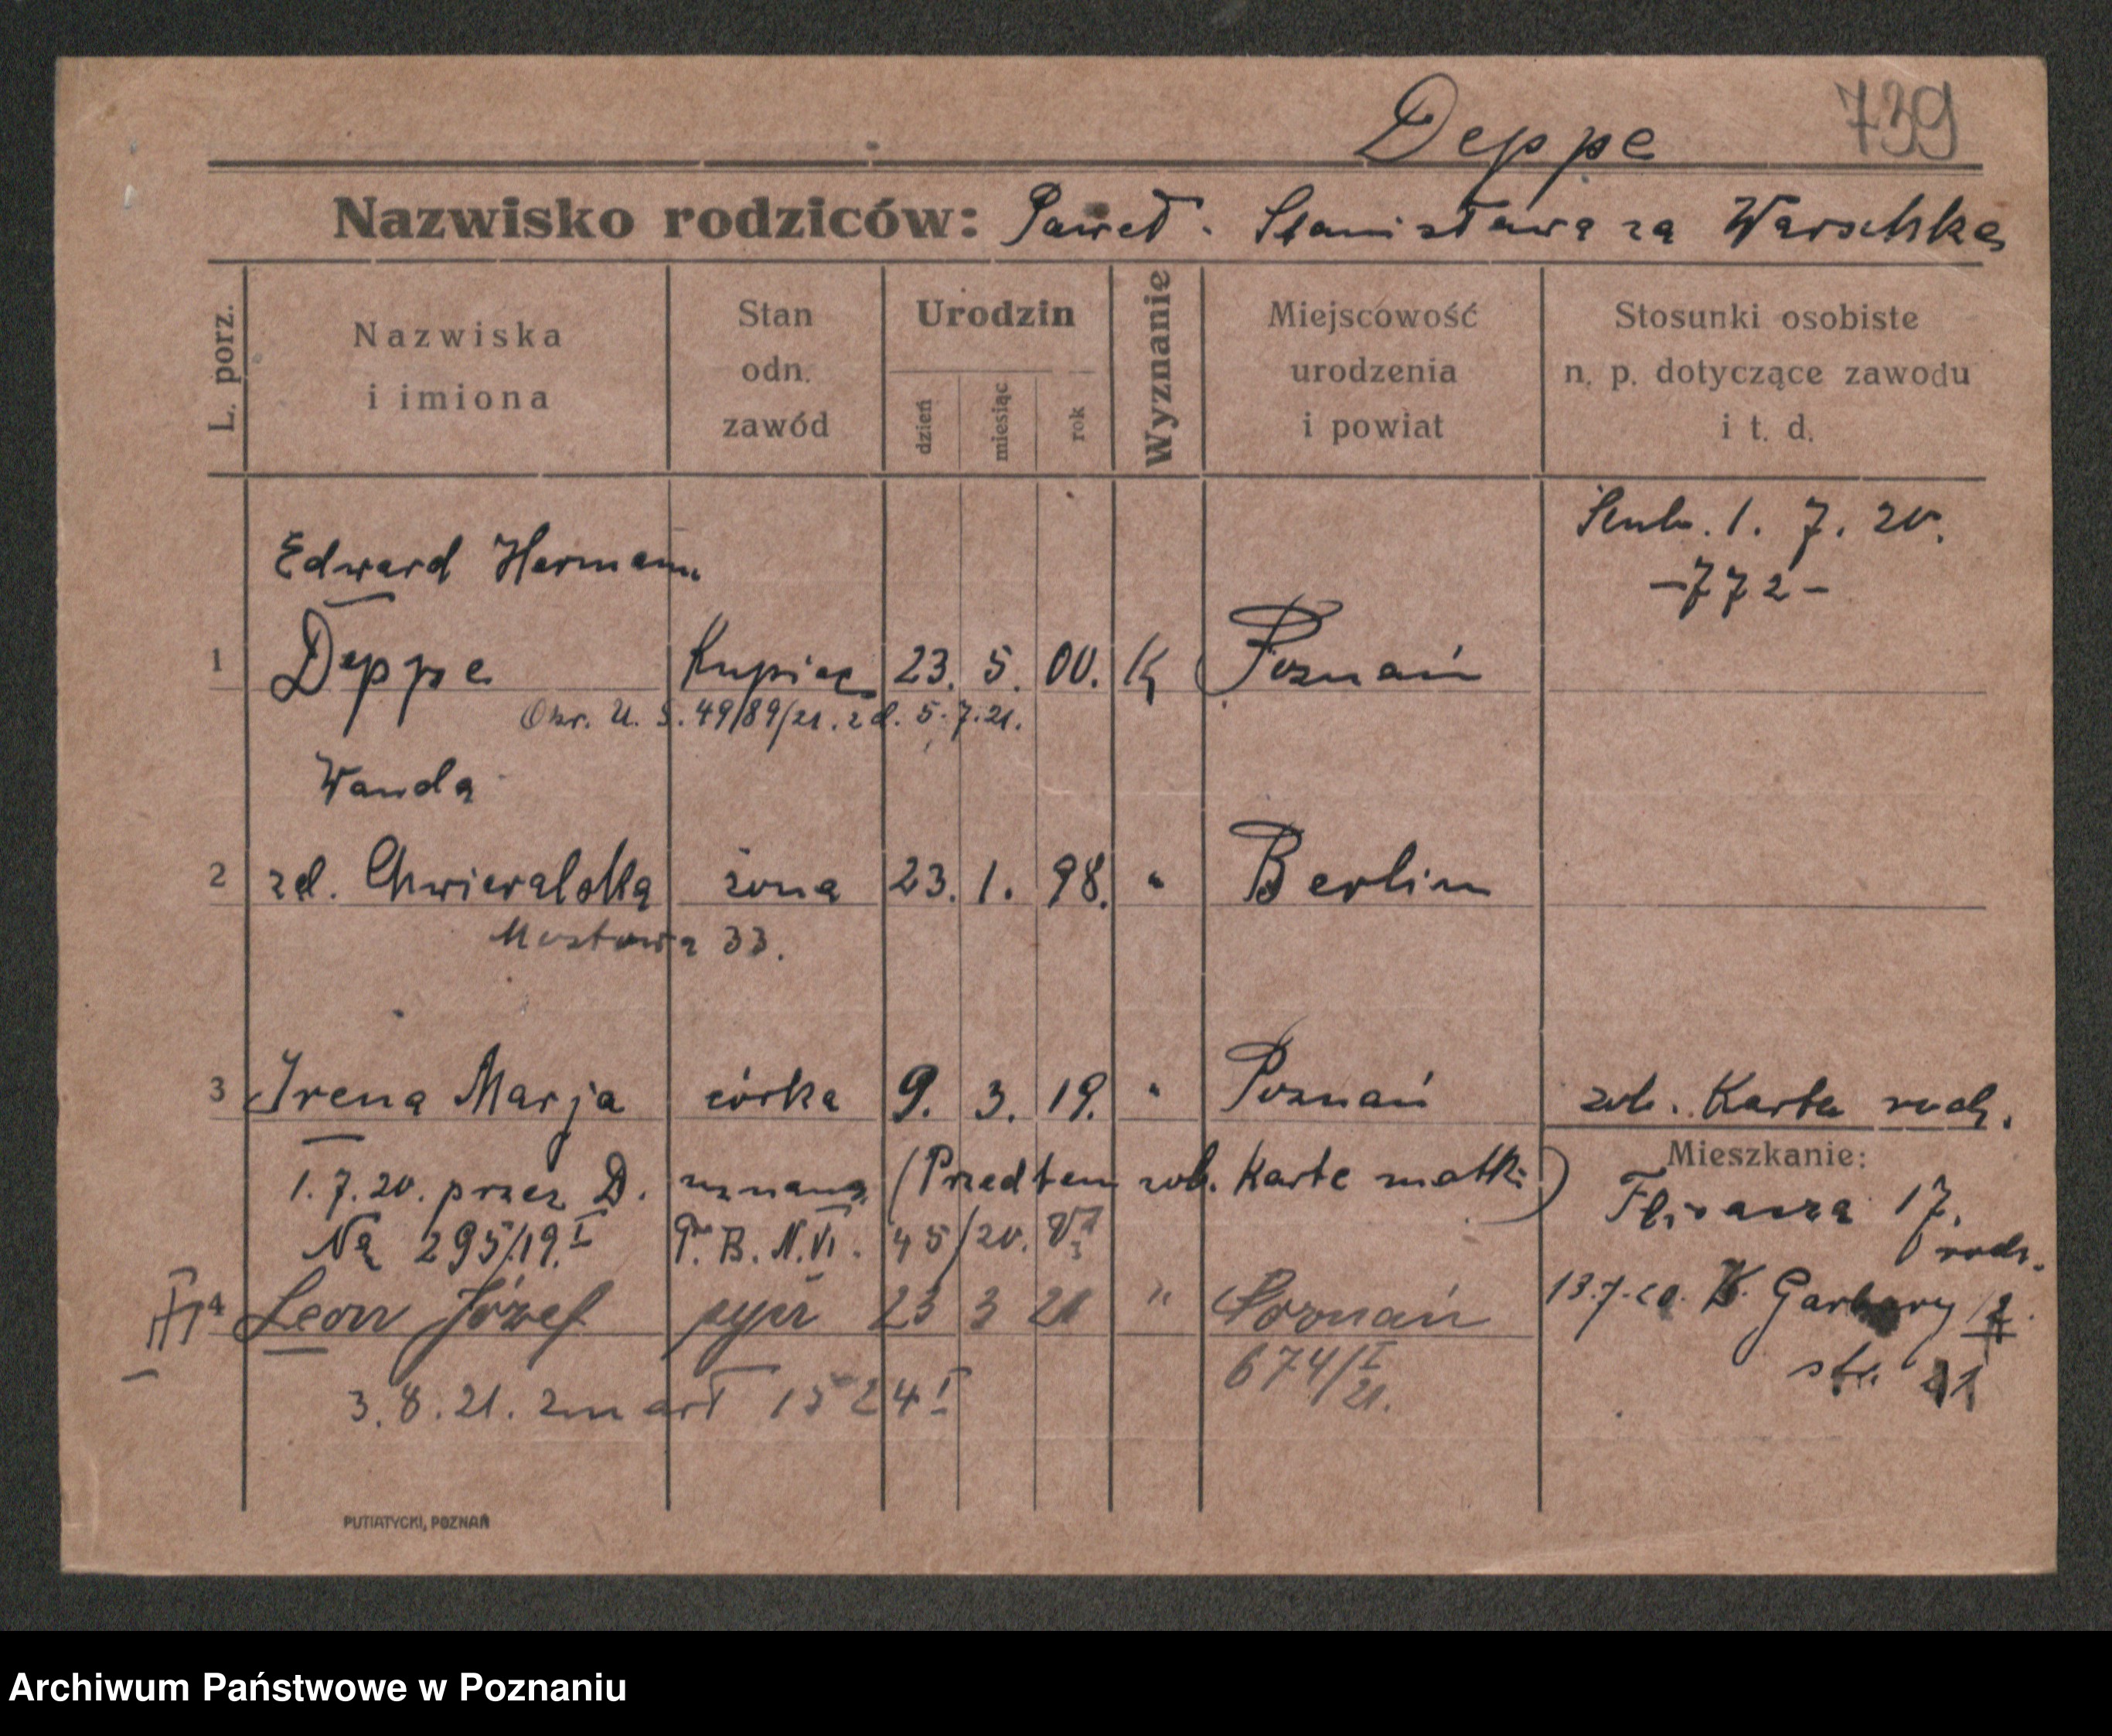 Deppe 739
Nazwisko rodziców: Paweł. Stanisława za Warschke
L. porz.
Nazwiska
i imiona
Stan
odn.
zawód
Urodzin
dzień miesiąc rok
Wyznanie
Miejscowość
urodzenia
i powiat
Stosunki osobiste
n. p. dotyczące zawodu
i t. d.
1. 7. 20.
-772-
Edward Hermann
1 Deppe Kupiec 23. 5. 00. K Poznań
U. S. 49/89/21. z d. 5.7.21.
Wanda
2 zd. Chwieralska żona 23. 1. 98. " Berlin
Mostowa 33.
3 Irena Marja córka 9. 3. 19. " Poznań zob. Karta rodz.
Mieszkanie:
1.7.20. przez D. uznana (Przedtem zob. Karte matki)
17.
rodz.
Na 295/19.I P. B. N. VI. 45/20.
4 Leon Józef syn 23 3 21 " Poznań
13.7.20. W. Garbary
str. 21
674/I 21.
3.8.21. zmarł 1524 I
PUTIATYCKI, POZNAŃ
Archiwum Państwowe w Poznaniu